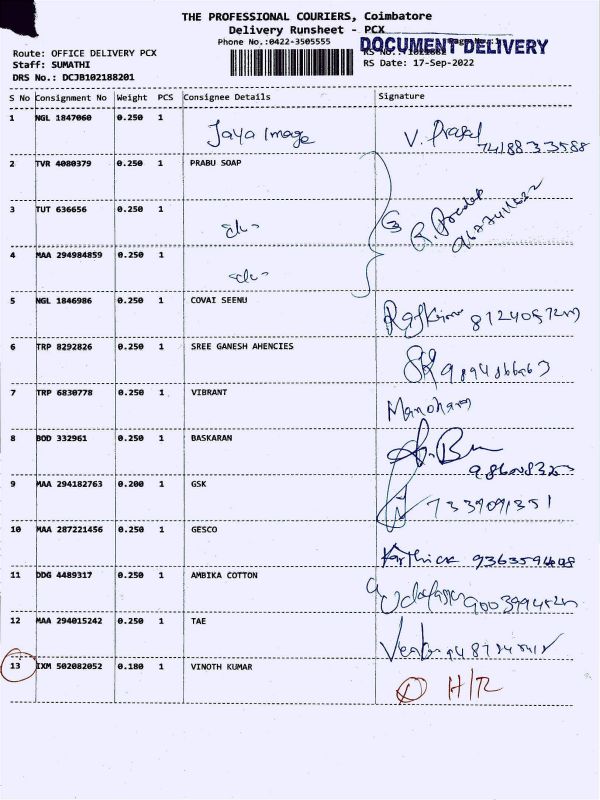 THE PROFESSIONAL COURIERS, Coimbatore
Delivery Runsheet - PCX
Phone No.:0422-3505555
DOCUMENT DELIVERY
Route: OFFICE DELIVERY PCX
RS No.:
Staff: SUMATHI
RS Date: 17-Sep-2022
DRS No.: DCJB102188201
S No Consignment No Weight PCS Consignee Details Signature
1 NGL 1847060 0.250 1 Jaya Image V. Prasad 7418833588
2 TVR 4080379 0.250 1 PRABU SOAP
3 TUT 636656 0.250 1
4 MAA 294984859 0.250 1
5 NGL 1846986 0.250 1 COVAI SEENU
6 TRP 8292826 0.250 1 SREE GANESH AHENCIES
7 TRP 6830778 0.250 1 VIBRANT Manoharan
8 BOD 332961 0.250 1 BASKARAN
9 MAA 294182763 0.200 1 GSK 7339091351
10 MAA 287221456 0.250 1 GESCO Karthick 9363594608
11 DDG 4489317 0.250 1 AMBIKA COTTON
12 MAA 294015242 0.250 1 TAE
13 IXM 502082052 0.180 1 VINOTH KUMAR H/R